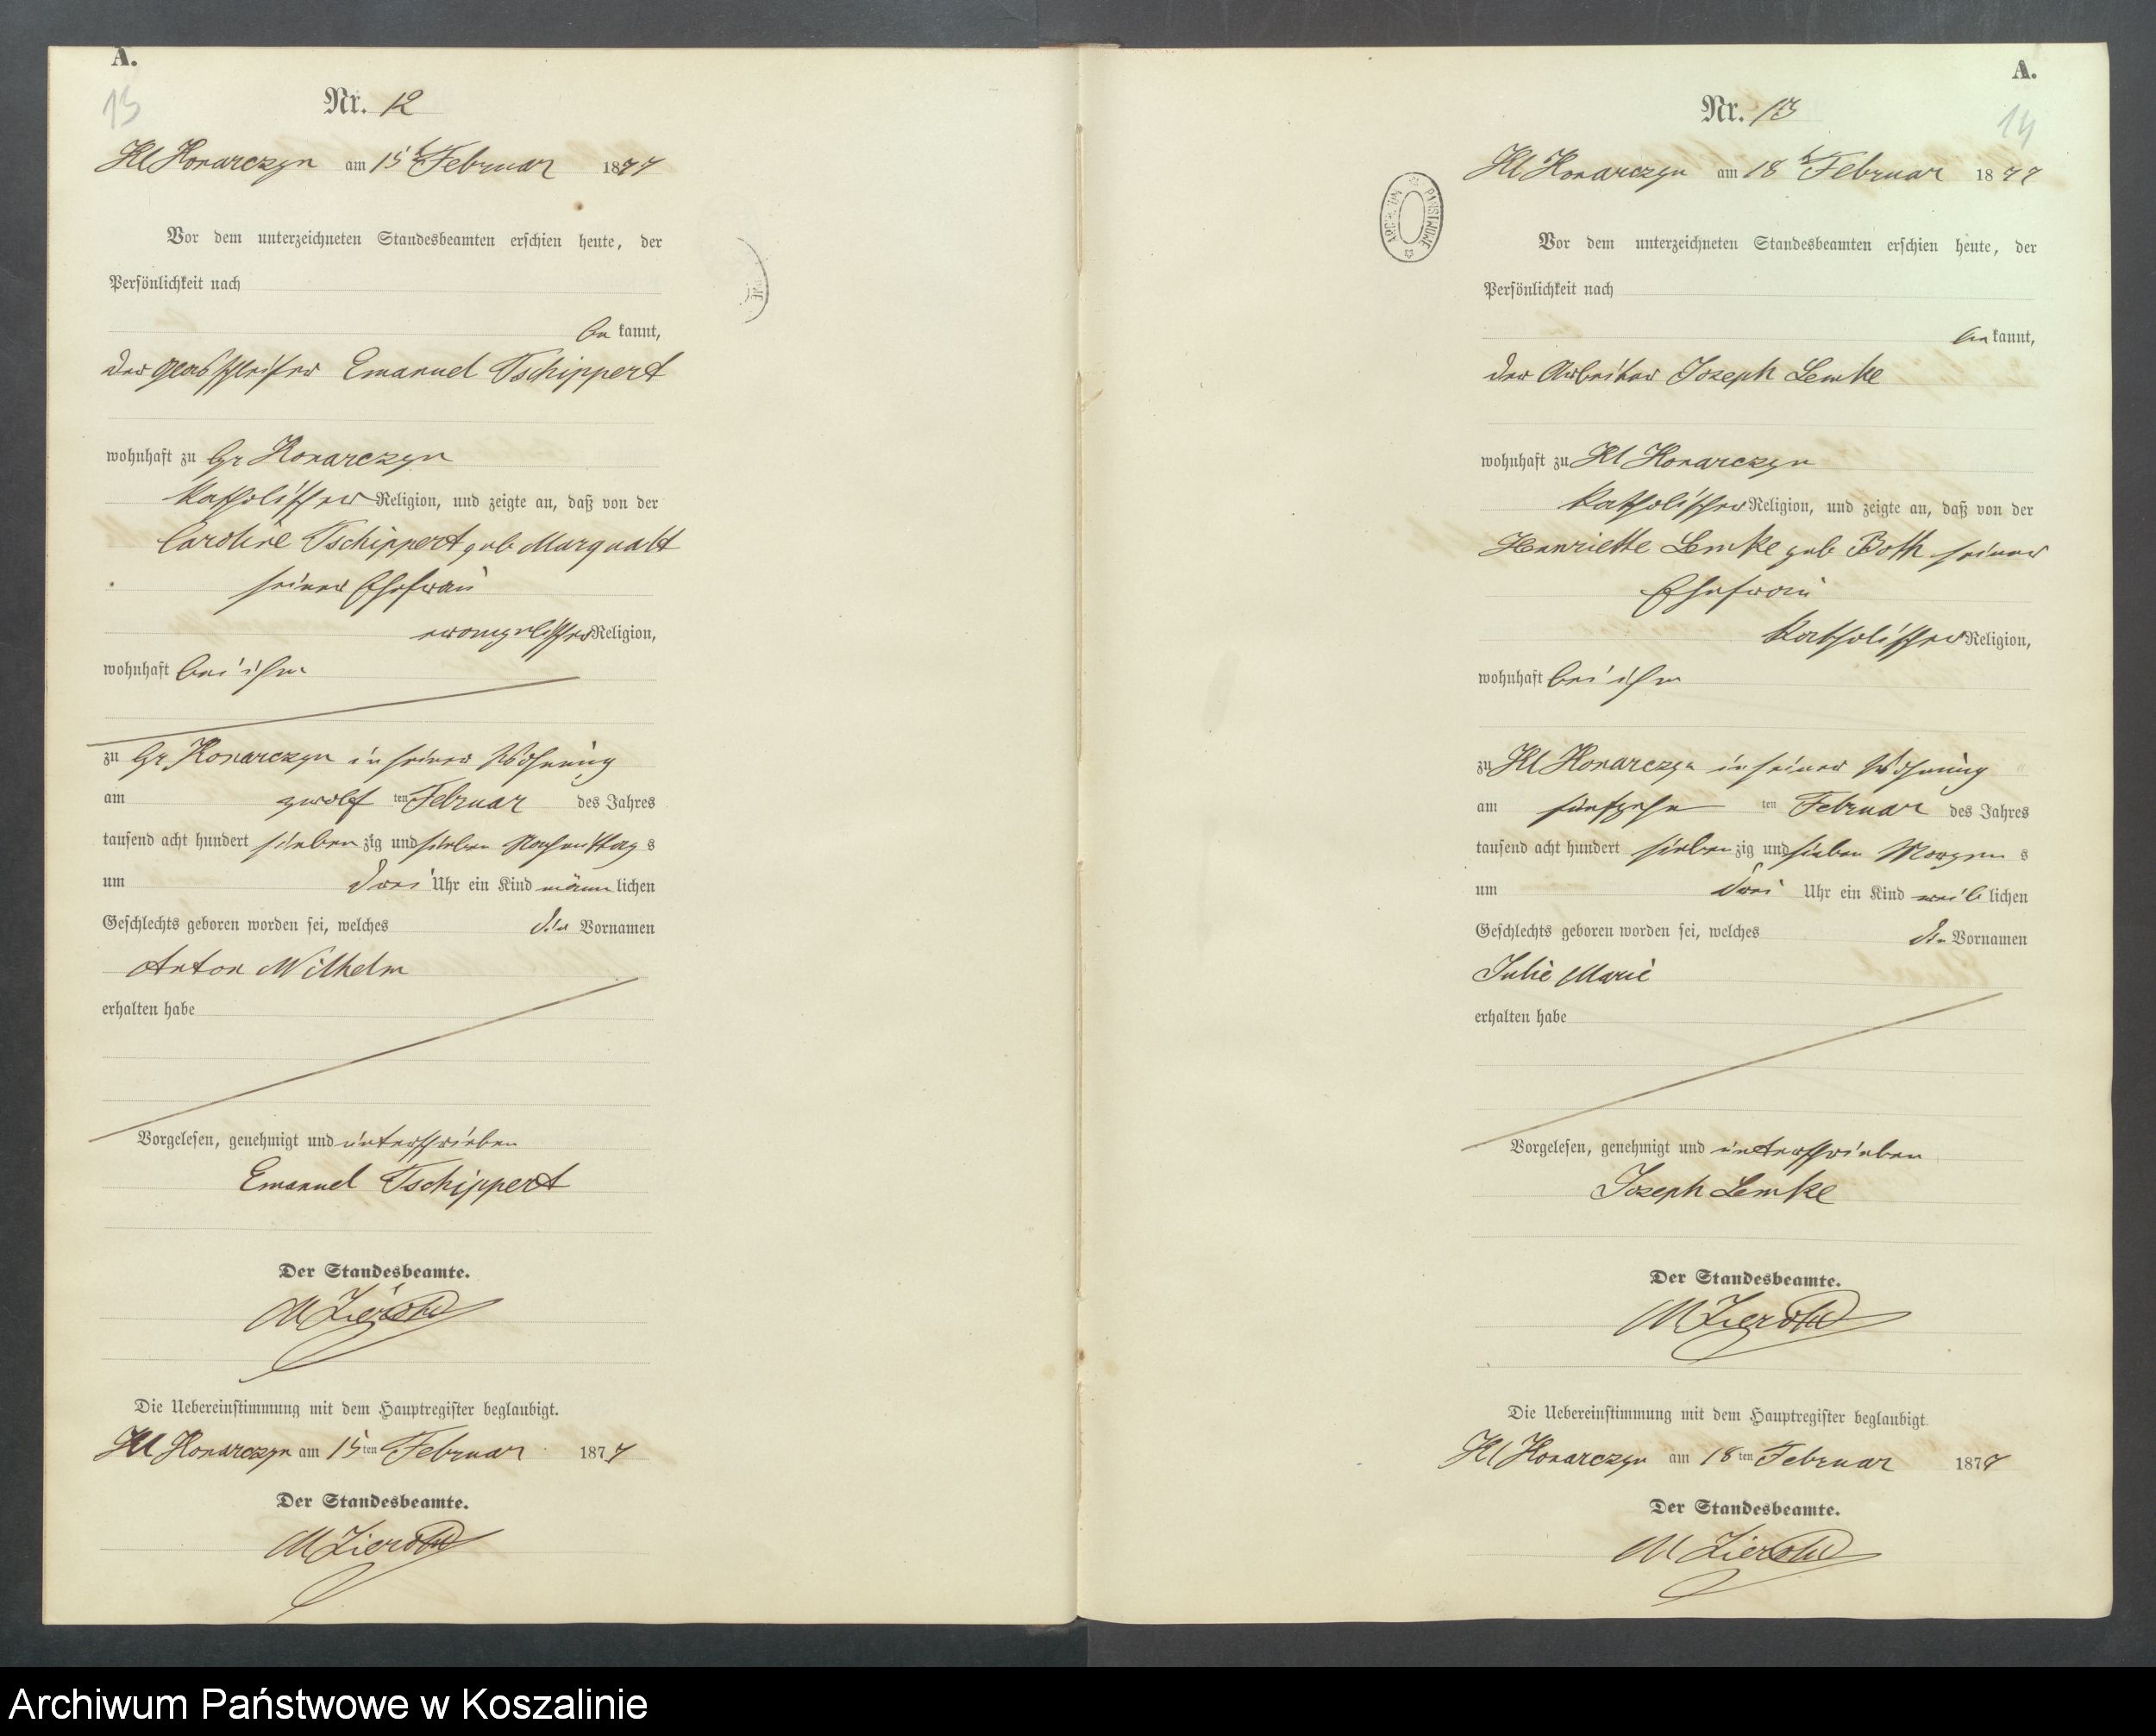 A.
13
Nr. 12
Kl Konarczyn am 15t Februar 1877
Vor dem unterzeichneten Standesbeamten erschien heute, der
Persönlichkeit nach
be kannt,
der Glasschleifer Emanuel Tschippert
wohnhaft zu Gr Konarczyn
katholischer Religion, und zeigte an, daß von der
Caroline Tschippert geb Marquatt
seiner Ehefrau
evangelischer Religion,
wohnhaft bei ihm
zu Gr Konarczyn in seiner Wohnung
am zwölf ten Februar des Jahres
tausend acht hundert sieben zig und sieben Nachmittag s
um drei Uhr ein Kind männ lichen
Geschlechts geboren worden sei, welches die Vornamen
Anton Wilhelm
erhalten habe
Vorgelesen, genehmigt und unterschrieben
Emanuel Tschippert
Der Standesbeamte.
M Zierold
Die Uebereinstimmung mit dem Hauptregister beglaubigt.
Kl Konarczyn am 15 ten Februar 1877
Der Standesbeamte.
M Zierold
A.
14
Nr. 13
Kl Konarczyn am 18t Februar 1877
Vor dem unterzeichneten Standesbeamten erschien heute, der
Persönlichkeit nach
be kannt,
der Arbeiter Joseph Lemke
wohnhaft zu Kl Konarczyn
katholischer Religion, und zeigte an, daß von der
Henriette Lemke geb Both seiner
Ehefrau
katholischer Religion,
wohnhaft bei ihm
zu Kl Konarczyn in seiner Wohnung
am fünfzehn ten Februar des Jahres
tausend acht hundert sieben zig und sieben Morgen s
um drei Uhr ein Kind weib lichen
Geschlechts geboren worden sei, welches die Vornamen
Julie Marie
erhalten habe
Vorgelesen, genehmigt und unterschrieben
Joseph Lemke
Der Standesbeamte.
M Zierold
Die Uebereinstimmung mit dem Hauptregister beglaubigt
Kl Konarczyn am 18 ten Februar 1877
Der Standesbeamte.
M Zierold
Archiwum Państwowe w Koszalinie